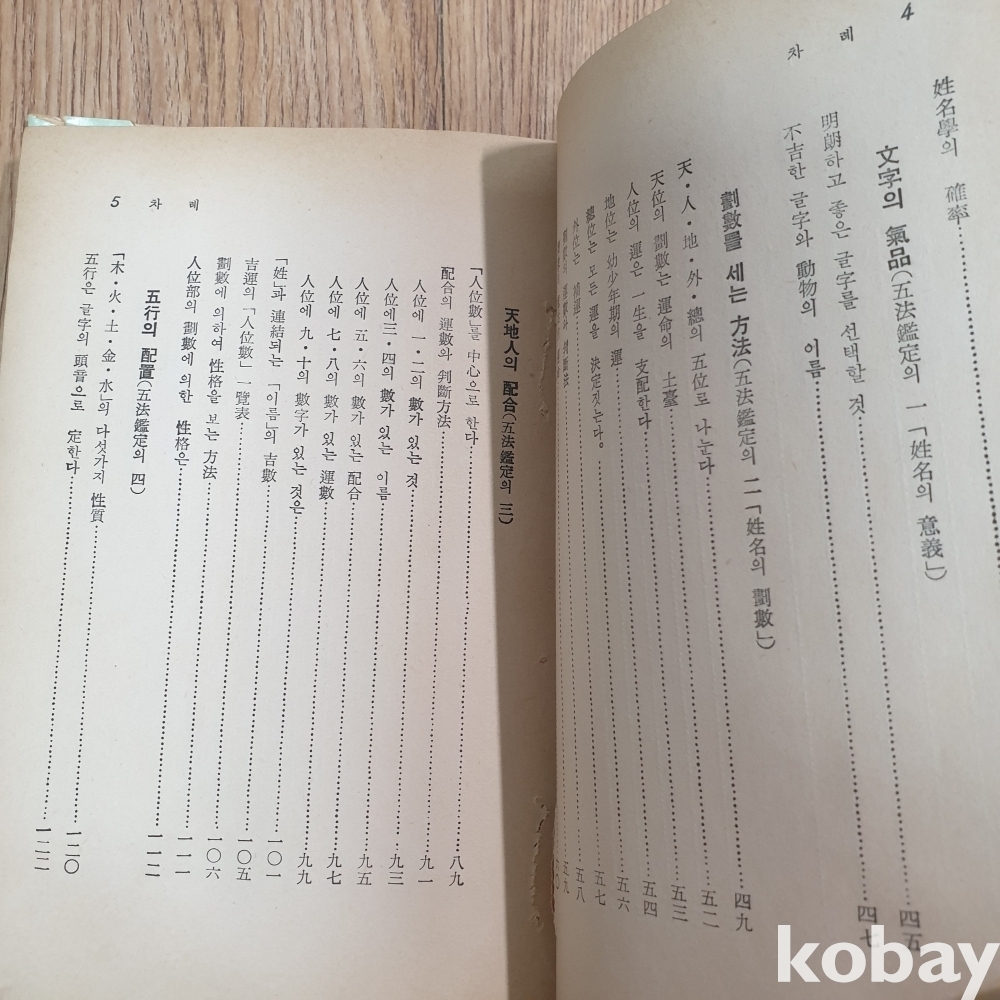 4
차 례
姓名學의 確率
文字의 氣品(五法鑑定의 一「姓名의 意義」)
明朗하고 좋은 글字를 選択할 것 四五
不吉한 글字와 動物의 이름 四七
劃數를 세는 方法(五法鑑定의 二「姓名의 劃數」) 四九
天・人・地・外・總의 五位로 나눈다 五二
天位의 劃數는 運命의 土臺 五三
人位의 運은 一生을 支配한다 五四
地位는 幼少年期의 運 五六
總位는 모든 運을 決定짓는다 五七
外位는 補運 五八
五九
5 차 례
天地人의 配合(五法鑑定의 三)
「人位數」를 中心으로 한다 八九
配合의 運數와 判斷方法
人位에 一・二의 數가 있는 것 九一
人位에 三・四의 數가 있는 이름 九三
人位에 五・六의 數가 있는 配合 九五
人位에 七・八의 數가 있는 運數 九七
人位에 九・十의 數字가 있는 것은 九九
「姓」과 連結되는 「이름」의 吉數 一〇一
吉運의 「人位數」一覽表 一〇五
劃數에 의하여 性格을 보는 方法 一〇六
人位部의 劃數에 의한 性格은 一一一
五行의 配置(五法鑑定의 四) 一一二
「木・火・土・金・水」의 다섯가지 性質 一二〇
五行은 글字의 頭音으로 定한다 一二二
kobay